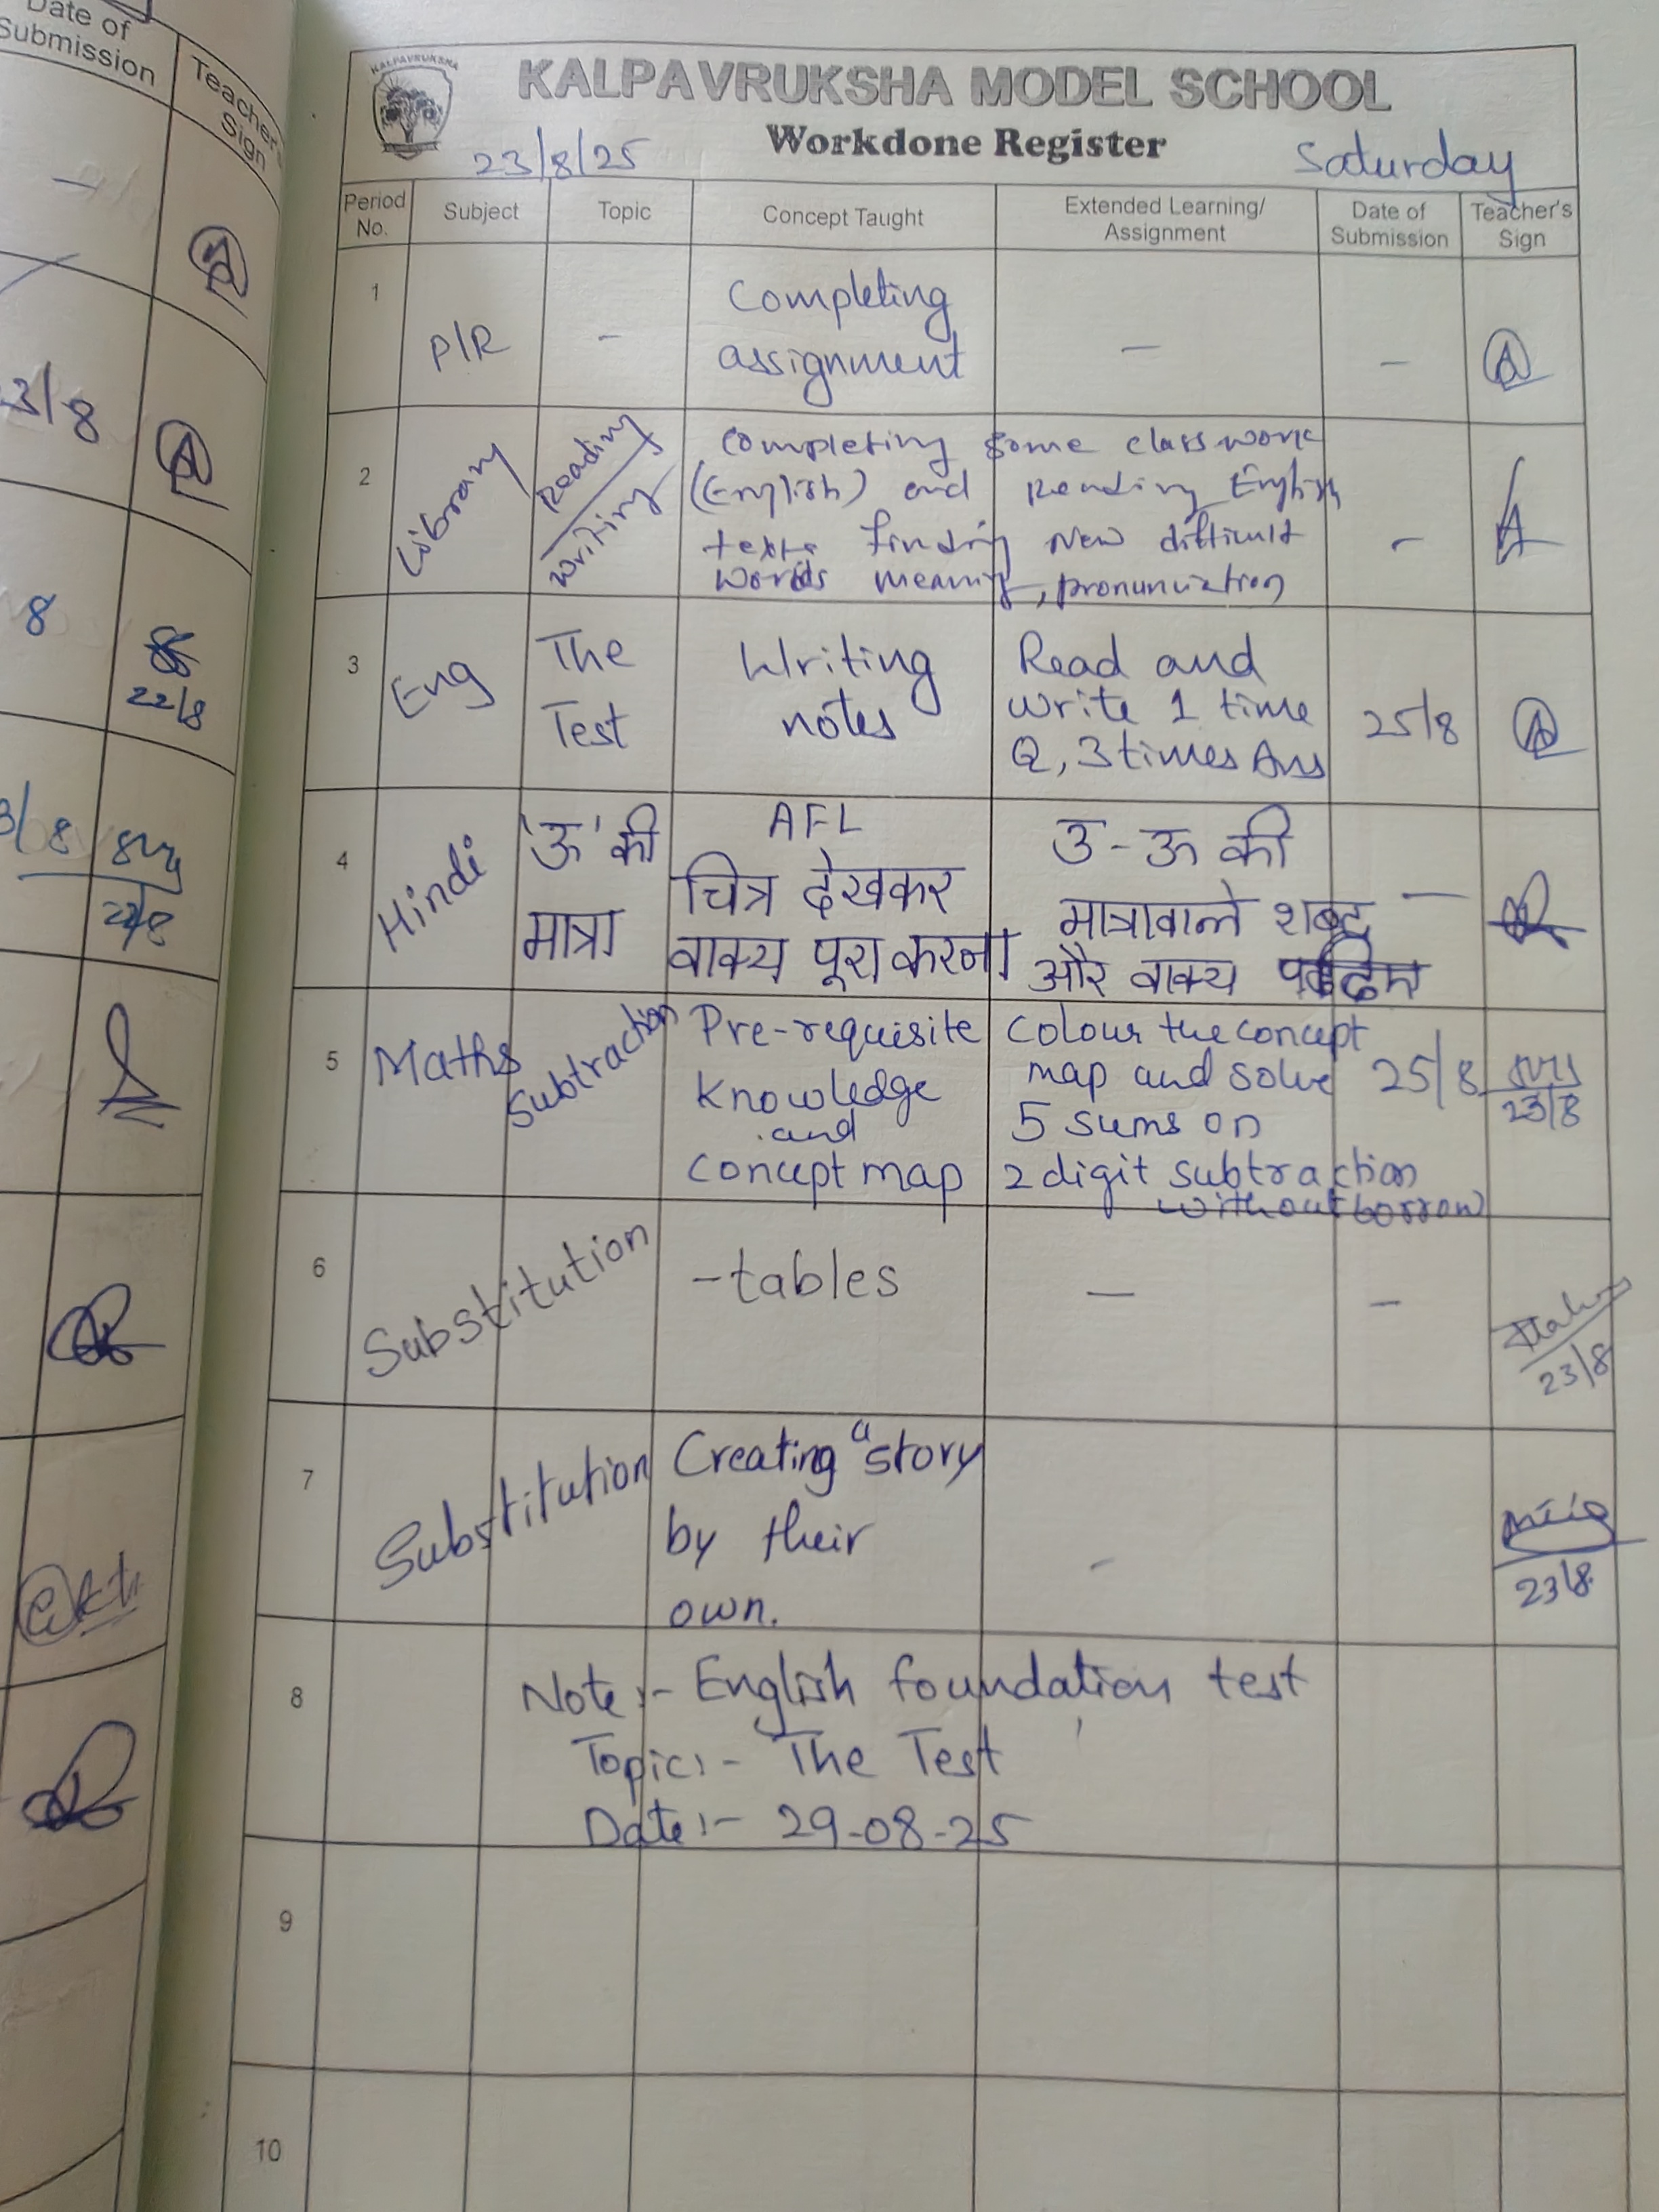 Date of
Submission
Teacher's
Sign
3/8
8
22/8
3/8
22/8
KALPAVRUKSHA
KALPAVRUKSHA MODEL SCHOOL
Workdone Register
23/8/25
Saturday
Period No.
Subject
Topic
Concept Taught
Extended Learning/
Assignment
Date of
Submission
Teacher's
Sign
1
P/R
-
Completing
assignment
-
-
2
Library
Reading
Writing
Completing some class work
(English) and Reading English
texts finding New difficult
words meaning, pronunciation
-
3
Eng
The
Test
Writing
notes
Read and
write 1 time
Q, 3 times Ans
25/8
4
Hindi
'ऊ' की
मात्रा
AFL
चित्र देखकर
वाक्य पूरा करना
उ-ऊ की
मात्रावाले शब्द
और वाक्य
-
5
Maths
Subtraction
Pre-requisite
Knowledge
and
Concept map
Colour the concept
map and solve
5 sums on
2 digit subtraction
without borrow
25/8
23/8
6
Substitution
-tables
-
-
23/8
7
Substitution
Creating a story
by their
own.
-
23/8
8
Note:- English foundation test
Topic:- The Test
Date:- 29-08-25
9
10